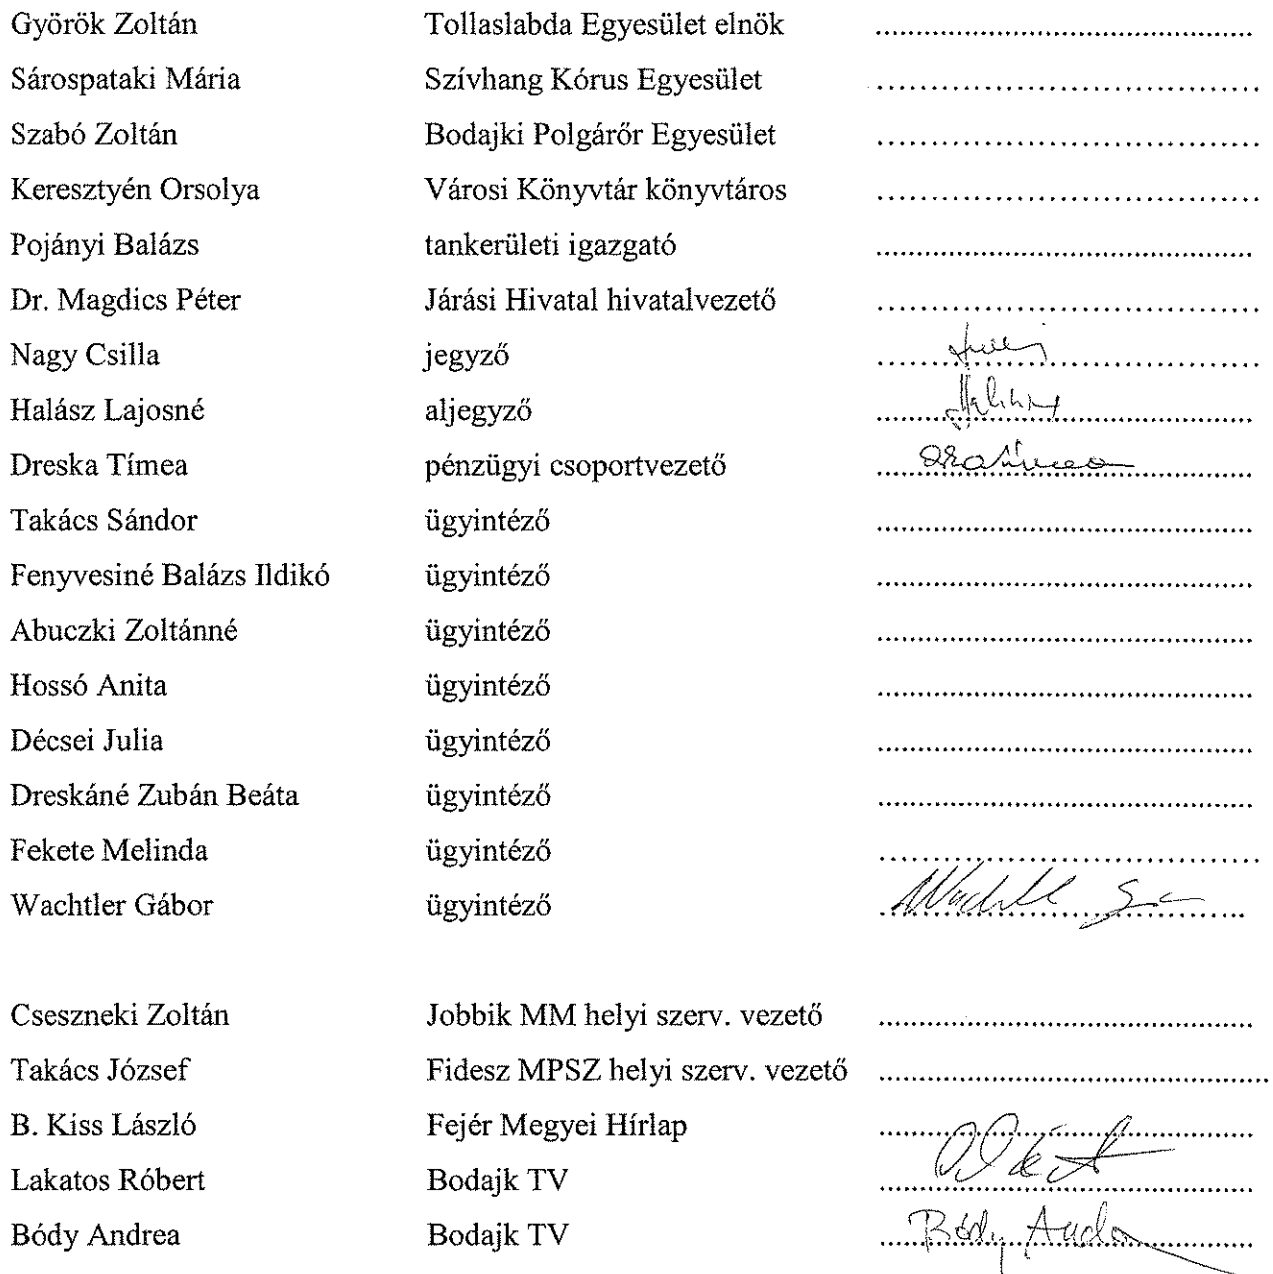 Györök Zoltán Tollaslabda Egyesület elnök ................................................
Sárospataki Mária Szívhang Kórus Egyesület ................................................
Szabó Zoltán Bodajki Polgárőr Egyesület ................................................
Keresztyén Orsolya Városi Könyvtár könyvtáros ................................................
Pojányi Balázs tankerületi igazgató ................................................
Dr. Magdics Péter Járási Hivatal hivatalvezető ................................................
Nagy Csilla jegyző ................................................
Halász Lajosné aljegyző ................................................
Dreska Tímea pénzügyi csoportvezető ................................................
Takács Sándor ügyintéző ................................................
Fenyvesiné Balázs Ildikó ügyintéző ................................................
Abuczki Zoltánné ügyintéző ................................................
Hossó Anita ügyintéző ................................................
Décsei Julia ügyintéző ................................................
Dreskáné Zubán Beáta ügyintéző ................................................
Fekete Melinda ügyintéző ................................................
Wachtler Gábor ügyintéző ................................................
Cseszneki Zoltán Jobbik MM helyi szerv. vezető ................................................
Takács József Fidesz MPSZ helyi szerv. vezető ................................................
B. Kiss László Fejér Megyei Hírlap ................................................
Lakatos Róbert Bodajk TV ................................................
Bódy Andrea Bodajk TV Bódy Andrea